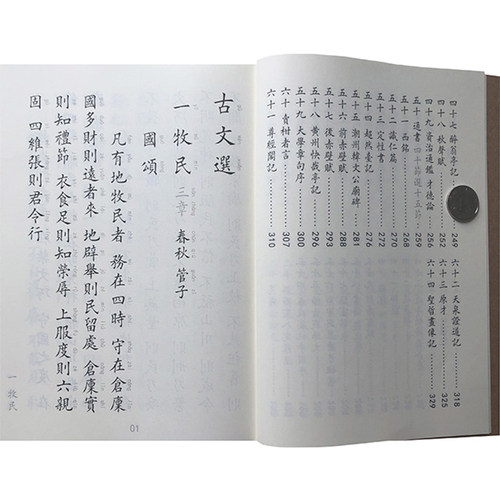 四十七 醉翁亭記 249
四十八 秋聲賦 252
四十九 資治通鑑 才德論 256
五十 通書 四十節選十五節 259
五十一 西銘 268
五十二 識仁篇 270
五十三 定性書 272
五十四 超然臺記 276
五十五 潮州韓文公廟碑 281
五十六 前赤壁賦 288
五十七 後赤壁賦 293
五十八 黃州快哉亭記 296
五十九 大學章句序 300
六十 賣柑者言 307
六十一 尊經閣記 310
六十二 天泉證道記 318
六十三 原才 325
六十四 聖哲畫像記 329
古文選
一 牧民 三章 春秋 管子
國頌
凡有地牧民者 務在四時 守在倉廩
國多財則遠者來 地辟舉則民留處 倉廩實
則知禮節 衣食足則知榮辱 上服度則六親
固 四維張則君令行
一 牧民
01